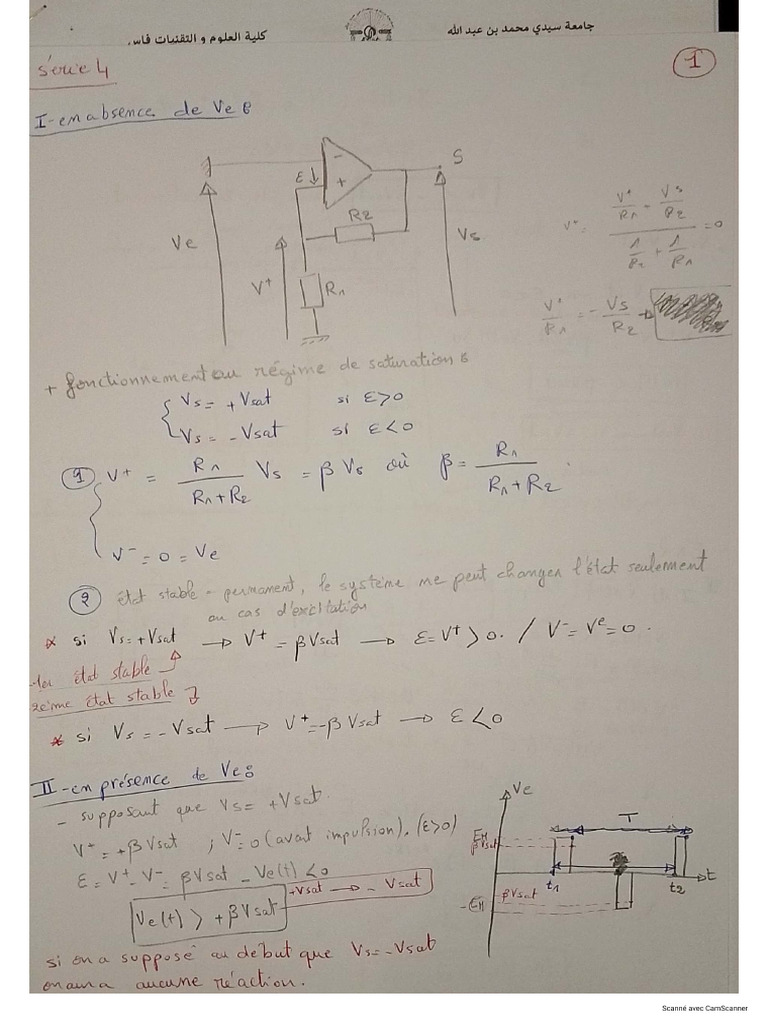 جامعة سيدي محمد بن عبد الله
كلية العلوم و التقنيات فاس
Série 4
1
I-en absence de Ve :
S
ε↓
-
+
R2
Ve
V+
R1
Vs
V+ = (V+/R1 - Vs/R2) / (1/R2 + 1/R1) = 0
V+/R1 = - Vs/R2 →
+ fonctionnement au régime de saturation :
{ Vs = +Vsat si ε>0
Vs = -Vsat si ε<0
1 { V+ = R1/(R1+R2) Vs = β Vs où β = R1/(R1+R2).
V- = 0 = Ve
2 état stable = permanent, le système ne peut changer l'état seulement
au cas d'excitation
* si Vs=+Vsat → V+ = βVsat → ε=V+ > 0. / V- = Ve = 0.
1er état stable
2ème état stable
* si Vs = -Vsat → V+ = -βVsat → ε < 0
II-en présence de Ve :
- supposant que Vs = +Vsat.
V+ = +βVsat ; V- = 0 (avant impulsion), (ε>0)
ε = V+ - V- = βVsat - Ve(t) < 0
Ve(t) > +βVsat
+Vsat → -Vsat
si on a supposé au début que Vs = -Vsat
on aura aucune réaction.
Ve
T
EM
βVsat
t1
t2
t
βVsat
-EM
Scanné avec CamScanner